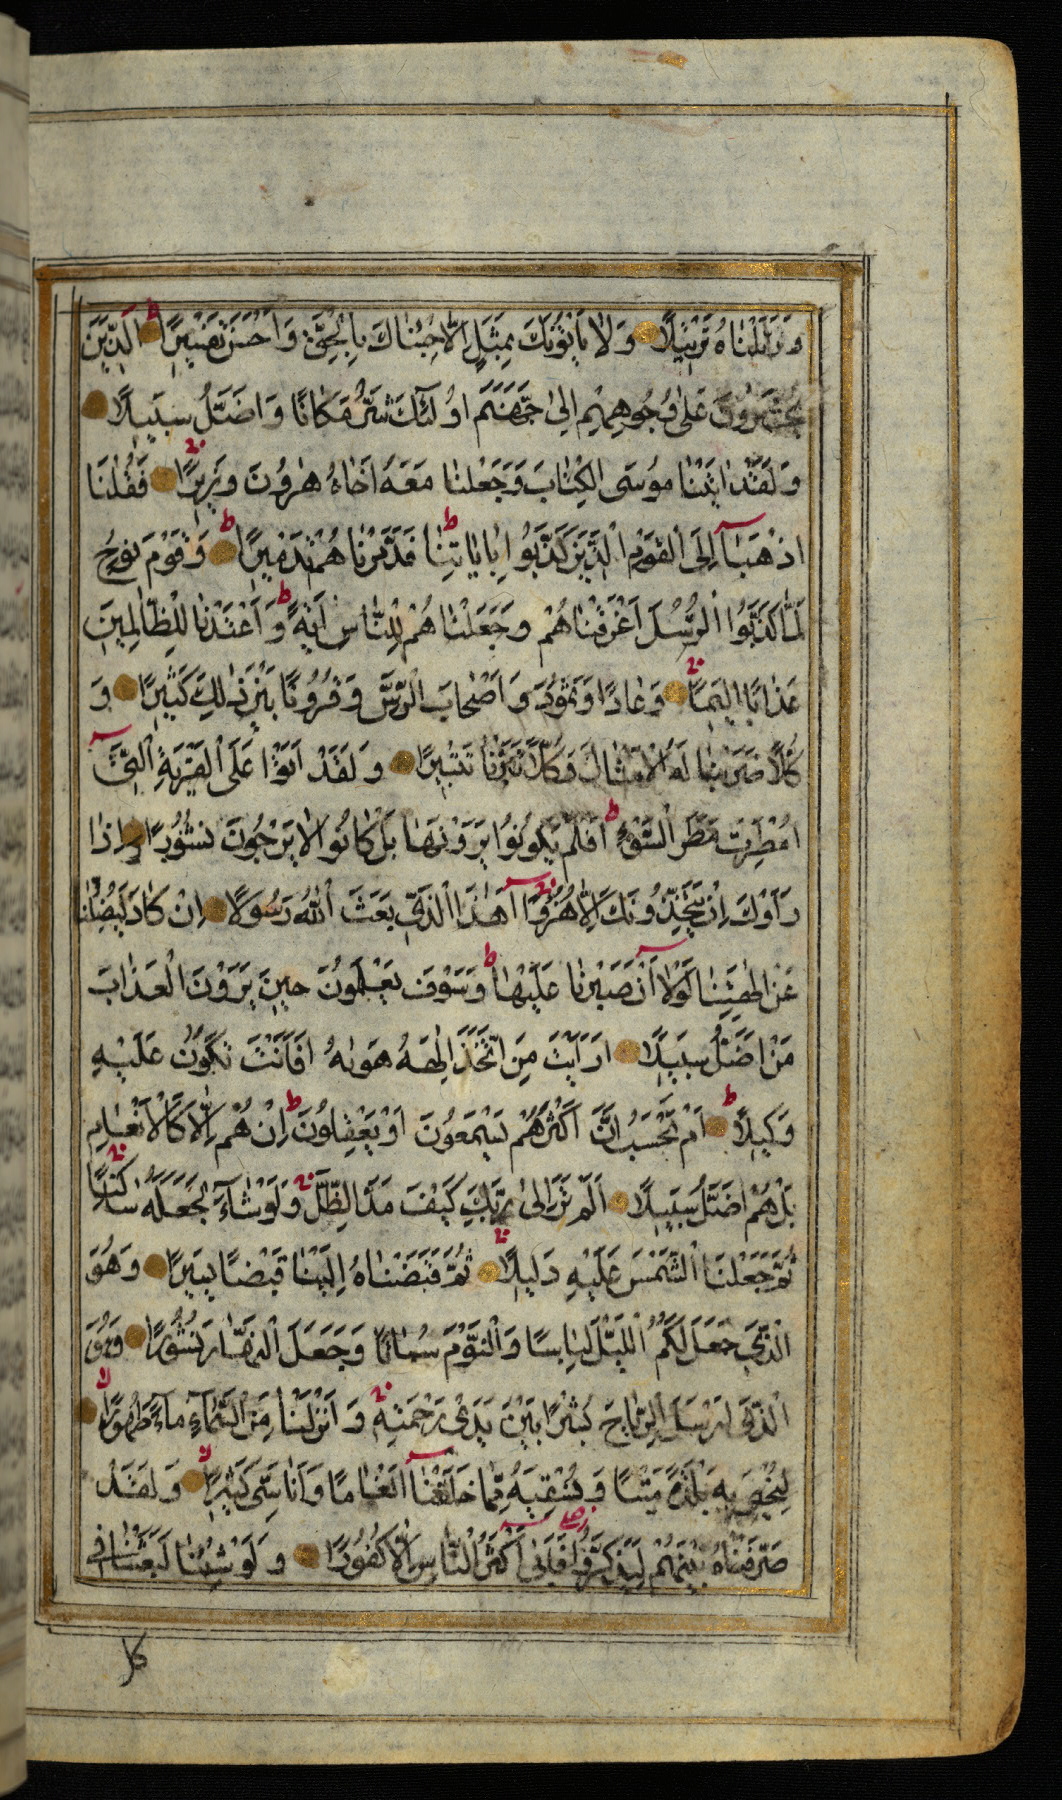 وَرَتَّلْنَاهُ تَرْتِيلًا وَلَا يَأْتُونَكَ بِمَثَلٍ اِلَّا جِئْنَاكَ بِالْحَقِّ وَاَحْسَنَ تَفْسِيرًا ط اَلَّذِينَ
يُحْشَرُونَ عَلٰى وُجُوهِهِمْ اِلٰى جَهَنَّمَ اُولٰئِكَ شَرٌّ مَكَانًا وَاَضَلُّ سَبِيلًا
وَلَقَدْ اٰتَيْنَا مُوسَى الْكِتَابَ وَجَعَلْنَا مَعَهُ اَخَاهُ هٰرُونَ وَزِيرًا فَقُلْنَا
اذْهَبَآ اِلَى الْقَوْمِ الَّذِينَ كَذَّبُوا بِاٰيَاتِنَا ط فَدَمَّرْنَاهُمْ تَدْمِيرًا ط وَقَوْمَ نُوحٍ
لَمَّا كَذَّبُوا الرُّسُلَ اَغْرَقْنَاهُمْ وَجَعَلْنَاهُمْ لِلنَّاسِ اٰيَةً ط وَاَعْتَدْنَا لِلظَّالِمِينَ
عَذَابًا اَلِيمًا وَعَادًا وَثَمُودَ وَاَصْحَابَ الرَّسِّ وَقُرُونًا بَيْنَ ذٰلِكَ كَثِيرًا وَ
كُلًّا ضَرَبْنَا لَهُ الْاَمْثَالَ وَكُلًّا تَبَّرْنَا تَتْبِيرًا وَلَقَدْ اَتَوْا عَلَى الْقَرْيَةِ الَّتِي
اُمْطِرَتْ مَطَرَ السَّوْءِ ط اَفَلَمْ يَكُونُوا يَرَوْنَهَا بَلْ كَانُوا لَا يَرْجُونَ نُشُورًا وَاِذَا
رَاَوْكَ اِنْ يَتَّخِذُونَكَ اِلَّا هُزُوًا اَهٰذَا الَّذِي بَعَثَ اللّٰهُ رَسُولًا اِنْ كَادَ لَيُضِلُّنَا
عَنْ اٰلِهَتِنَا لَوْلَا اَنْ صَبَرْنَا عَلَيْهَا ط وَسَوْفَ يَعْلَمُونَ حِينَ يَرَوْنَ الْعَذَابَ
مَنْ اَضَلُّ سَبِيلًا اَرَاَيْتَ مَنِ اتَّخَذَ اِلٰهَهُ هَوٰيهُ اَفَاَنْتَ تَكُونُ عَلَيْهِ
وَكِيلًا ط اَمْ تَحْسَبُ اَنَّ اَكْثَرَهُمْ يَسْمَعُونَ اَوْ يَعْقِلُونَ ط اِنْ هُمْ اِلَّا كَالْاَنْعَامِ
بَلْ هُمْ اَضَلُّ سَبِيلًا اَلَمْ تَرَ اِلٰى رَبِّكَ كَيْفَ مَدَّ الظِّلَّ وَلَوْ شَآءَ لَجَعَلَهُ سَاكِنًا
ثُمَّ جَعَلْنَا الشَّمْسَ عَلَيْهِ دَلِيلًا ثُمَّ قَبَضْنَاهُ اِلَيْنَا قَبْضًا يَسِيرًا وَهُوَ
الَّذِي جَعَلَ لَكُمُ اللَّيْلَ لِبَاسًا وَالنَّوْمَ سُبَاتًا وَجَعَلَ النَّهَارَ نُشُورًا وَهُوَ
الَّذِي اَرْسَلَ الرِّيَاحَ بُشْرًا بَيْنَ يَدَيْ رَحْمَتِهِ وَاَنْزَلْنَا مِنَ السَّمَآءِ مَآءً طَهُورًا لا
لِنُحْيِيَ بِهِ بَلْدَةً مَيْتًا وَنُسْقِيَهُ مِمَّا خَلَقْنَا اَنْعَامًا وَاَنَاسِيَّ كَثِيرًا وَلَقَدْ
صَرَّفْنَاهُ بَيْنَهُمْ لِيَذَّكَّرُوا فَاَبٰى اَكْثَرُ النَّاسِ اِلَّا كُفُورًا وَلَوْ شِئْنَا لَبَعَثْنَا فِي
كل